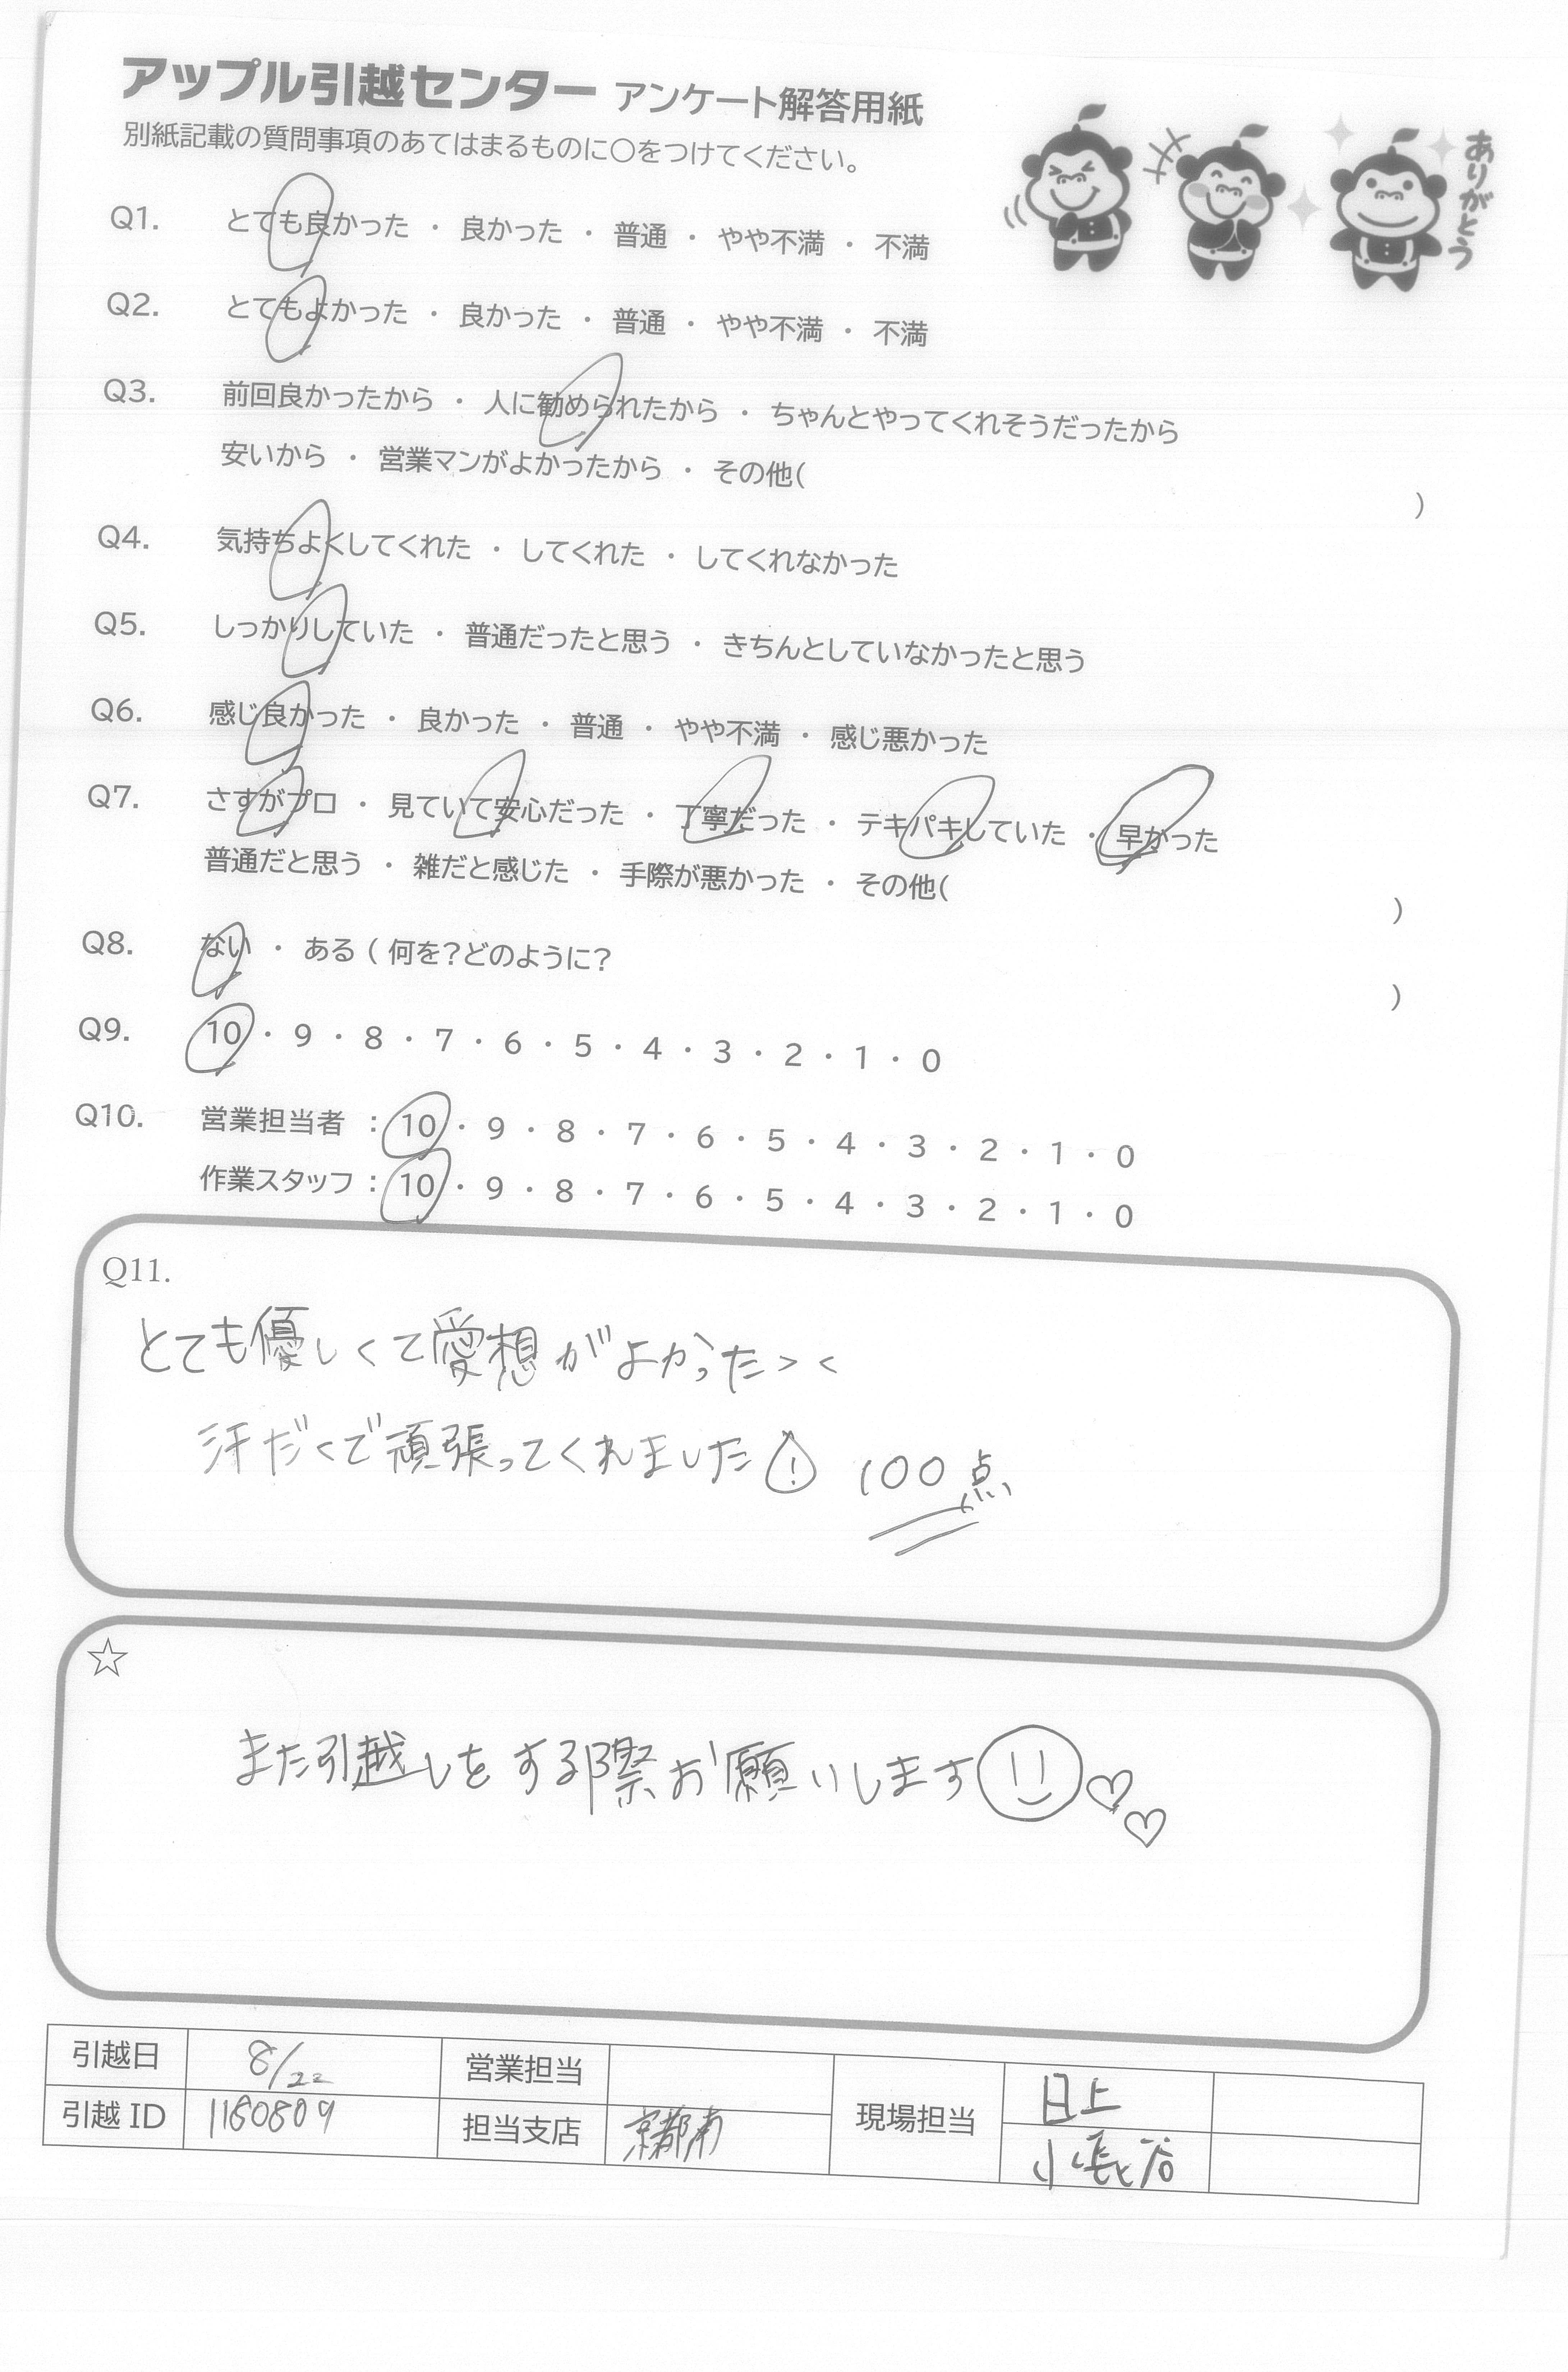 アップル引越センター アンケート解答用紙
別紙記載の質問事項のあてはまるものに○をつけてください。
ありがとう
Q1. とても良かった ・ 良かった ・ 普通 ・ やや不満 ・ 不満
Q2. とてもよかった ・ 良かった ・ 普通 ・ やや不満 ・ 不満
Q3. 前回良かったから ・ 人に勧められたから ・ ちゃんとやってくれそうだったから
安いから ・ 営業マンがよかったから ・ その他( )
Q4. 気持ちよくしてくれた ・ してくれた ・ してくれなかった
Q5. しっかりしていた ・ 普通だったと思う ・ きちんとしていなかったと思う
Q6. 感じ良かった ・ 良かった ・ 普通 ・ やや不満 ・ 感じ悪かった
Q7. さすがプロ ・ 見ていて安心だった ・ 丁寧だった ・ テキパキしていた ・ 早かった
普通だと思う ・ 雑だと感じた ・ 手際が悪かった ・ その他( )
Q8. ない ・ ある ( 何を?どのように? )
Q9. 10 ・ 9 ・ 8 ・ 7 ・ 6 ・ 5 ・ 4 ・ 3 ・ 2 ・ 1 ・ 0
Q10. 営業担当者 : 10 ・ 9 ・ 8 ・ 7 ・ 6 ・ 5 ・ 4 ・ 3 ・ 2 ・ 1 ・ 0
作業スタッフ : 10 ・ 9 ・ 8 ・ 7 ・ 6 ・ 5 ・ 4 ・ 3 ・ 2 ・ 1 ・ 0
Q11.
とても優しくて愛想がよかった> <
汗だくで頑張ってくれました! 100点
☆
また引越しをする際お願いします
引越日 8/22 営業担当 現場担当 日上
引越 ID 1180809 担当支店 京都南 小長谷